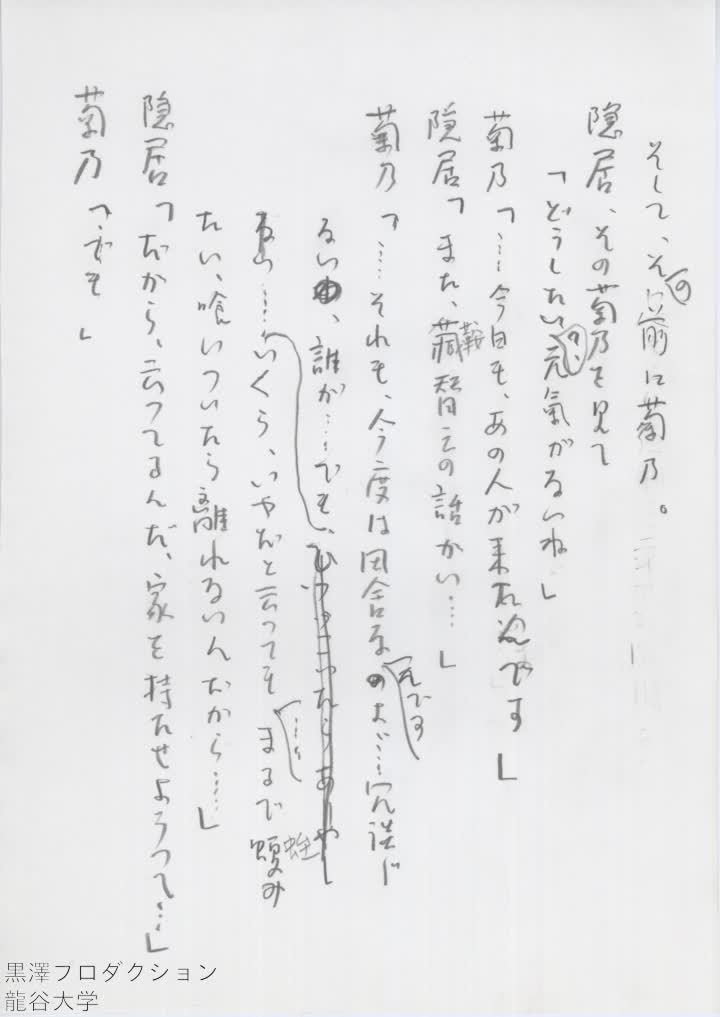 そして、その前に菊乃。
隠居、その菊乃を見て
「どうしたい、元氣がないね」
菊乃「…今日も、あの人が来たんです」
隠居「また、藪医者の話かい…」
菊乃「…それも、今度は田舎なんですよ…冗談じ
ない、誰が…でも、
ない…いくら、いやだと云っても…まるで蝮み
たい、喰いついたら離れないんだから…」
隠居「だから、云ってるんだ、家を持たせようって…」
菊乃「でも」
黒澤プロダクション
龍谷大学